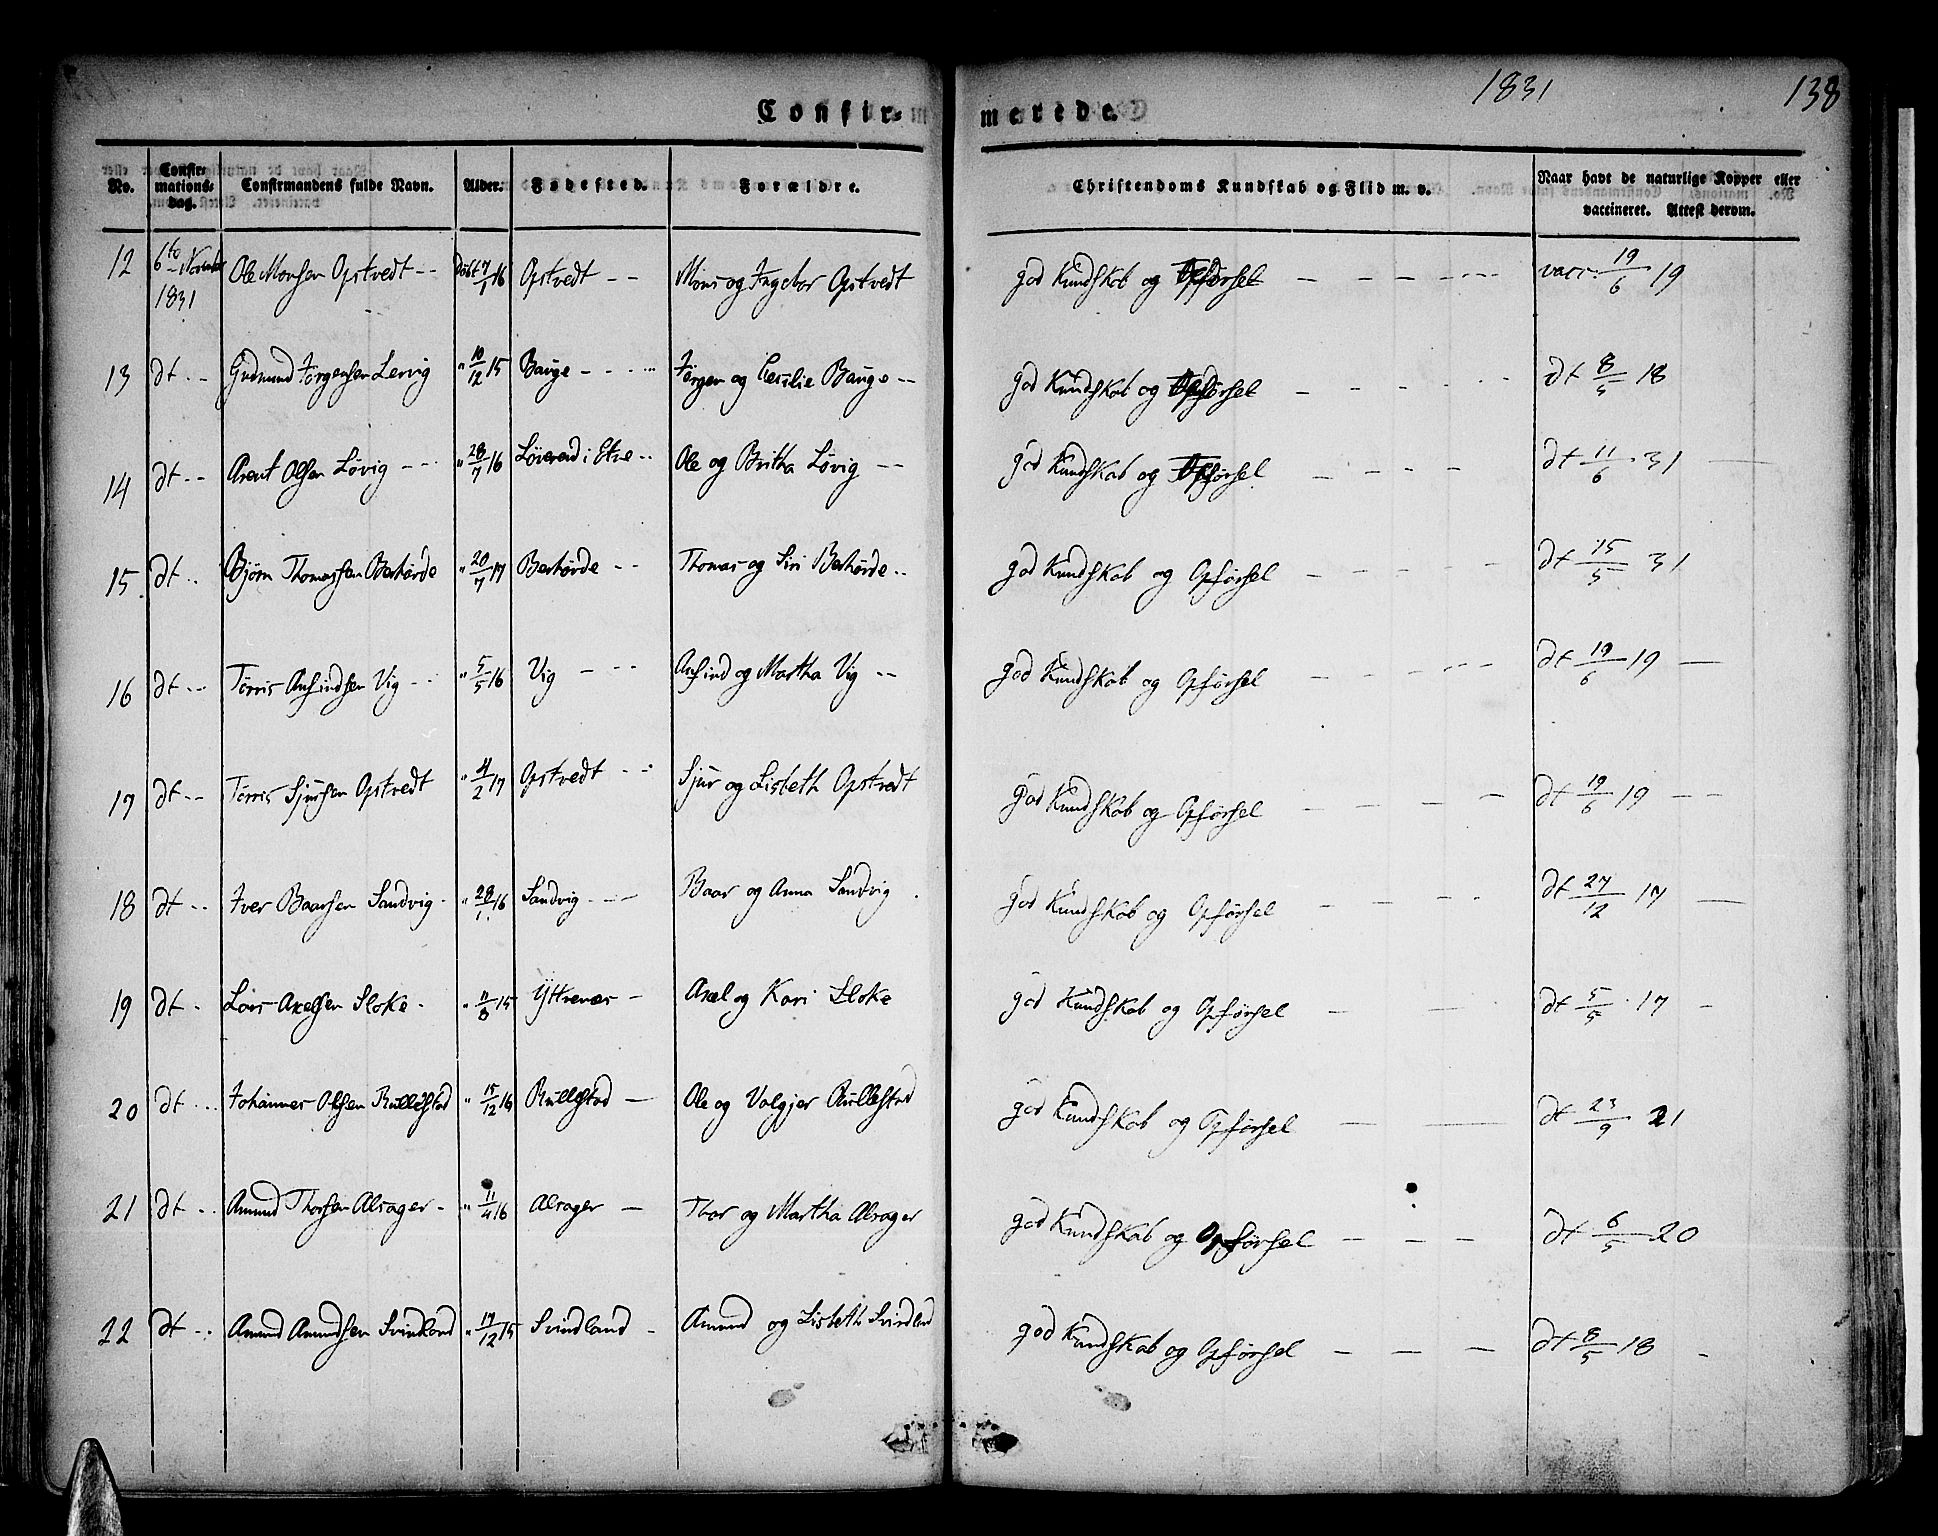 1831
138
Confir-merede.
No. Confir-mations-dag. Confirmandens fulde Navn. Alder. Fødested. Forældre. Christendoms Kundskab og Flid m. v. Naar havt de naturlige Kopper eller vaccineret. Attest derom.
12 6te November 1831 Ole Monsen Opstvedt -- Døbt 7/1 16 Opstvedt -- Mons og Ingebor Opstvedt god Kundskab og Opførsel vacc. 19/6 19
13 dt -- Gudmund Jørgensen Lervig " 10/12 15 Bauge ---- Jørgen og Cecilie Bauge -- god Kundskab og Opførsel dt 8/5 18
14 dt -- Arent Olsen Løvig --- " 28/7 16 i Etne -- Ole og Britha Løvig -- god Kundskab og Opførsel dt 11/6 31
15 dt -- Bjørn Thomassen Børhørde " 20/7 17 Berhørde -- Thomas og Siri Berhørde -- god Kundskab og Opførsel dt 15/5 31
16 dt -- Tørris Anfindsen Vig -- " 5/5 16 Vig --- Anfind og Martha Vig -- god Kundskab og Opførsel dt 19/6 19
17 dt -- Tørris Sjursen Opstvedt " 4/2 17 Opstvedt -- Sjur og Lisbeth Opstvedt god Kundskab og Opførsel dt 19/6 19
18 dt -- Iver Baarsen Sandvig - " 28/1 16 Sandvig --- Baar og Anna Sandvig god Kundskab og Opførsel dt 27/12 17
19 dt - Lars Axelsen Sloke - " 11/8 15 Yttrenæs - Axel og Kari Sloke god Kundskab og Opførsel dt 5/5 17
20 dt -- Johannes Olsen Rullestad " 15/12 16 Rullestad - Ole og Valgjer Rullestad god Kundskab og Opførsel dt 23/9 21
21 dt -- Amund Thorsen Alsager - " 11/4 16 Alsager - Thor og Martha Alsager god Kundskab og Opførsel dt 6/5 20
22 dt -- Amund Amundsen Svindland " 17/12 15 Svindland - Amund og Lisbeth Svindland god Kundskab og Opførsel dt 8/5 18